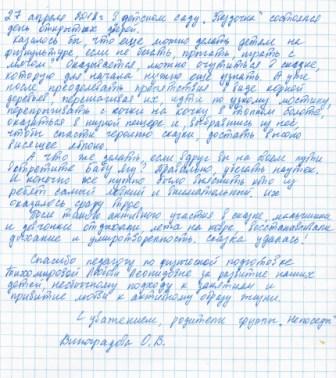 27 апреля 2018 г. в детском саду "Звездочка" состоялся
день открытых дверей.
Казалось бы, что еще можно делать детям на
физкультуре, если не бегать, прыгать, играть с
мячом? Оказывается, можно очутиться в сказке,
которую для начала нужно еще узнать. А уже
после, преодолевать препятствия в виде корней
деревьев, перешагивая их, идти по узкому мостику,
перепрыгивать с кочки на кочку в топком болоте,
оказаться в норе и выбравшись из нее,
чтобы спасти героиню сказки, достать высоко
висящее яблоко.
А что же делать, если вдруг вы на своем пути
встретите бабу ягу! Правильно, сделать паучок.
И конечно же нужно было выяснить кто из
ребят самый ловкий и внимательный, их
оказалось сразу трое.
После такого активного участия в сказке, мальчишки
и девчонки отдыхали лежа на ковре, восстанавливали
дыхание и умиротворенность. Сказка удалась!
Спасибо педагогу по физической подготовке
Тихомировой Любови за развитие наших
детей, необычному подходу к занятиям и
привитие любви к активному образу жизни.
С уважением, родители группы "Непоседы"
Виноградова О.В.